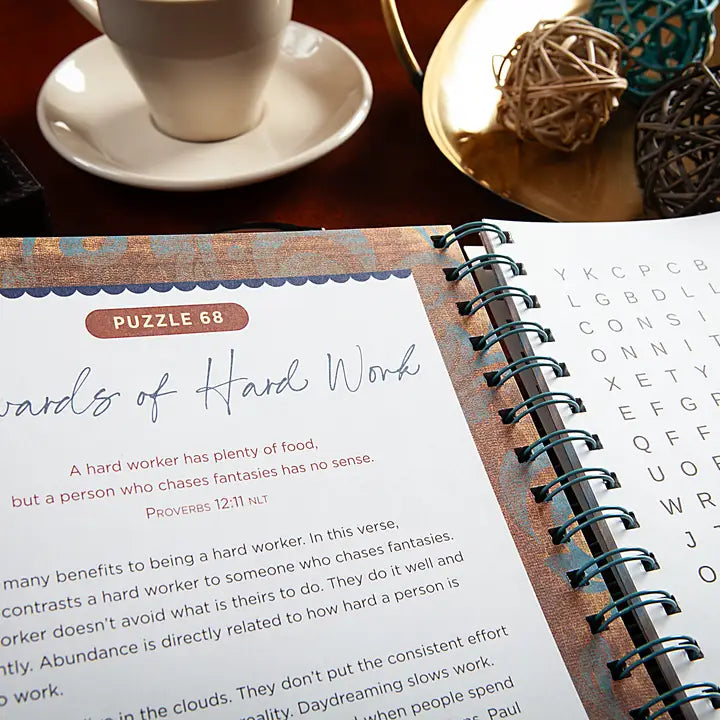 PUZZLE 68
wards of Hard Work
A hard worker has plenty of food,
but a person who chases fantasies has no sense.
PROVERBS 12:11 NLT
many benefits to being a hard worker. In this verse,
contrasts a hard worker to someone who chases fantasies.
orker doesn't avoid what is theirs to do. They do it well and
ntly. Abundance is directly related to how hard a person is
o work.
in the clouds. They don't put the consistent effort
eality. Daydreaming slows work.
when people spend
Paul
Y K C P C B
L G B D L
C O N S I
O N N I T
X E T Y
E F G F
Q F F
U O F
W R
J
O